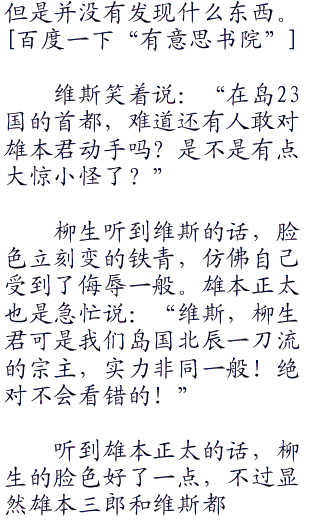 但是并没有发现什么东西。
[百度一下“有意思书院”]
维斯笑着说：“在岛23
国的首都，难道还有人敢对
雄本君动手吗？是不是有点
大惊小怪了？”
柳生听到维斯的话，脸
色立刻变的铁青，仿佛自己
受到了侮辱一般。雄本正太
也是急忙说：“维斯，柳生
君可是我们岛国北辰一刀流
的宗主，实力非同一般！绝
对不会看错的！”
听到雄本正太的话，柳
生的脸色好了一点，不过显
然雄本三郎和维斯都